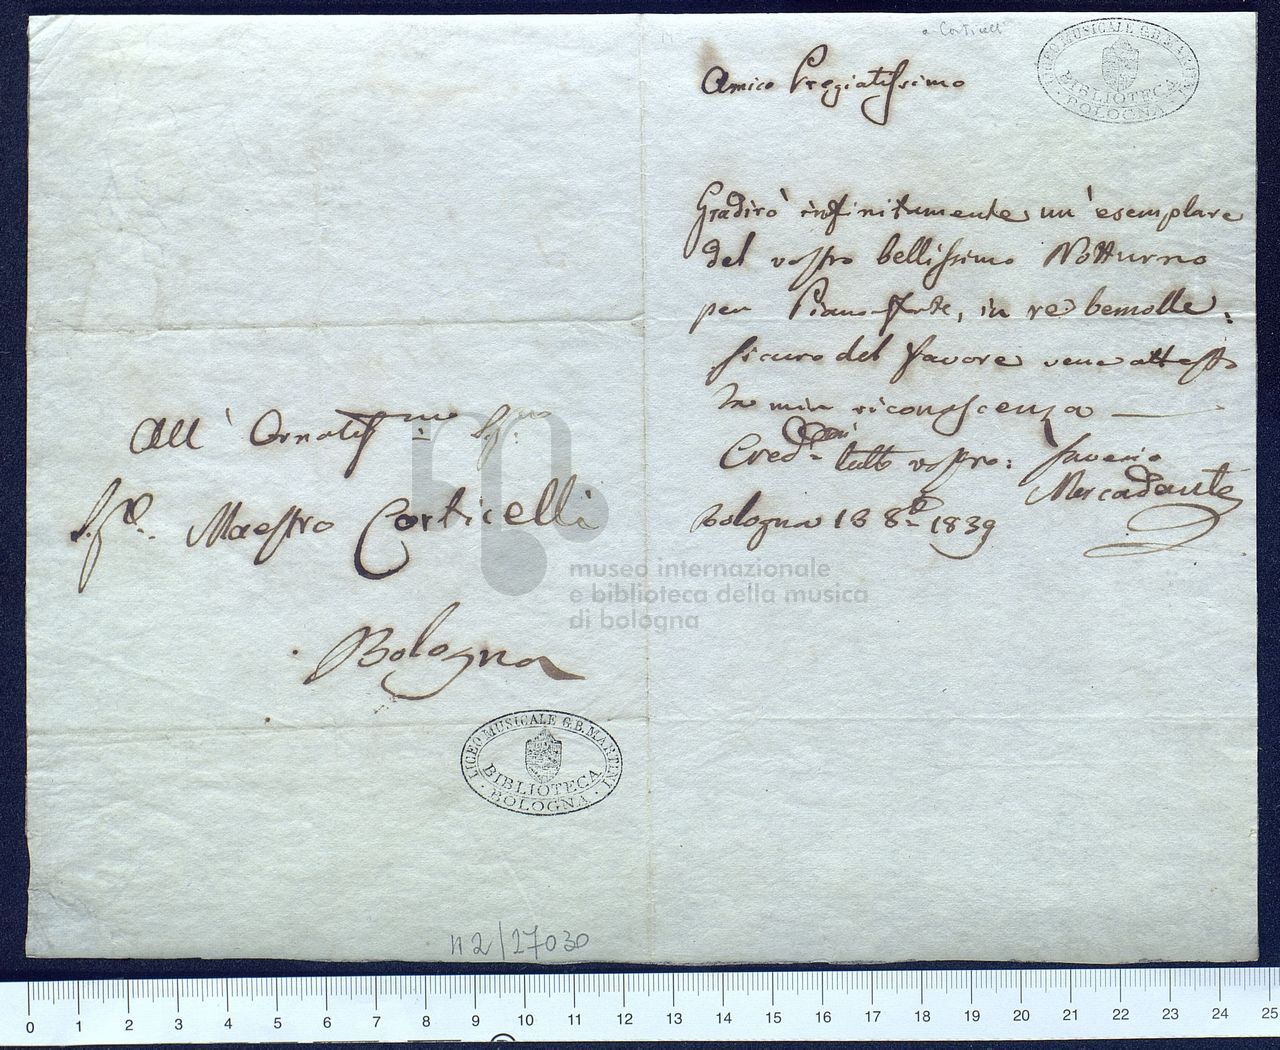 a Corticelli
LICEO MUSICALE G.B. MARTINI
BIBLIOTECA
BOLOGNA
Amico Pregiatissimo
Gradirò infinitamente un' esemplare
del vostro bellissimo Notturno
per Piano-forte, in re bemolle.
sicuro del favore ve ne attesto
la mia riconoscenza
Cred.mi tutto vostro: Saverio
Mercadante
Bologna 18 8.e 1839
All' Ornatiss.mo Sig.
Sig.e Maestro Corticelli
Bologna
LICEO MUSICALE G.B. MARTINI
BIBLIOTECA
BOLOGNA
museo internazionale
e biblioteca della musica
di bologna
n 2/27030
0 1 2 3 4 5 6 7 8 9 10 11 12 13 14 15 16 17 18 19 20 21 22 23 24 25